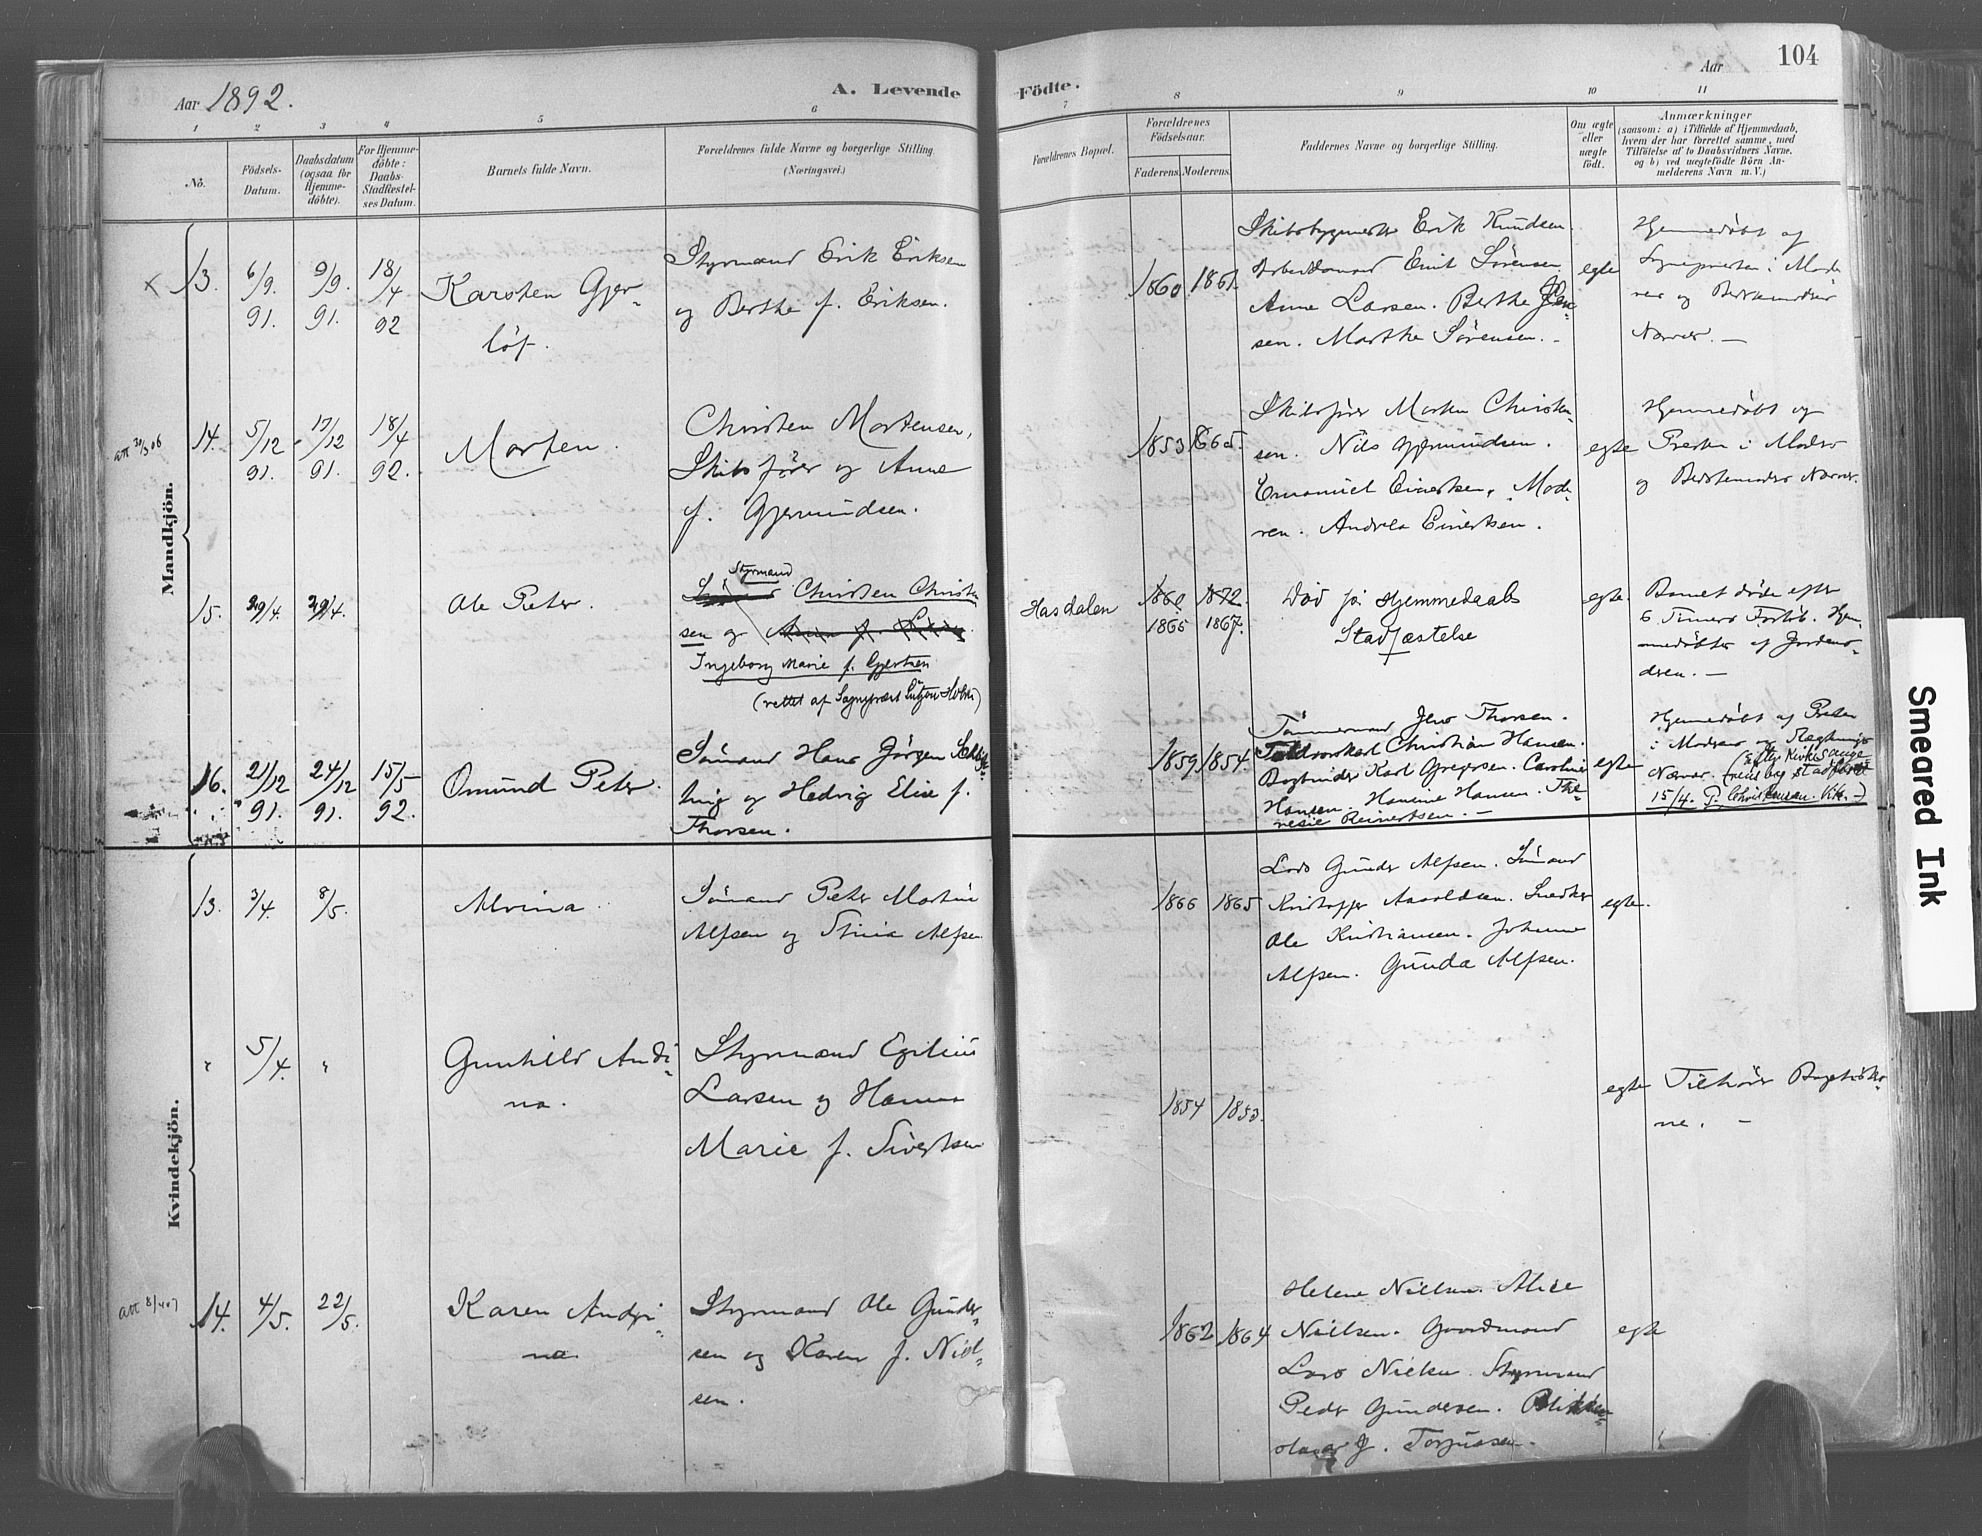 Aar 1892.
A. Levende Födte.
Aar
104
1 2 3 4 5 6 7 8 9 10 11
No.
Födsels-
Datum.
Daabsdatum
(ogsaa for
Hjemme-
döbte).
For Hjemme-
döbte:
Daabs-
Stadfæstel-
ses Datum.
Barnets fulde Navn.
Forældrenes fulde Navne og borgerlige Stilling.
(Næringsvei.)
Forældrenes Bopæl.
Forældrenes
Födselsaar.
Faderens
Moderens
Faddernes Navne og borgerlige Stilling.
Om ægte
eller
uægte
födt.
Anmærkninger
(saasom: a) i Tilfælde af Hjemmedaab,
hvem der har forrettet samme, med
Tilföielse af to Daabsvidners Navne.
og b) ved uægtefödte Börn An-
melderens Navn m. V.)
Mandkjön.
13.
6/9.
91.
9/9.
91.
18/4
92
Karsten Gjer-
löf.
Styrmand Erik Eriksen
og Berthe f. Eriksen.
1860
1861.
Skibsbygmester Erik Knudsen.
Arbeidsmand Emil Sörensen
Anne Larsen. Berthe
sen. Marthe Sörensen.
egte
Hjemmedöbt af
Sognepresten i Mode-
ren og Bestemoders
Nærvær. —
14.
5/12
91.
17/12
91.
18/4
92.
Morten.
Christen Mortensen,
Skibsförer og Anne
f. Gjermundsen.
1853
1865.
Skibsförer Morten Christen-
sen. Nils Gjermundsen.
Emanuel Einertsen, Mode-
ren. Andrea Einertsen.
egte
Hjemmedöbt og
Presten i Moders
og Bestemoders Nærvær.
15.
29/4.
29/4.
Ole Peter.
Styrmand
Christen Christen
sen og
Ingeborg Marie f. Gjertsen
(rettet af Sogneprest Lützow Holm)
Hasdalen
1860.
1866
1872.
1867.
Död för Hjemmedaabs
Stadfæstelse
egte.
Barnet döde efter
6 Timers Forlöb. Hjem-
medöbtes af Jordemo-
deren. —
16.
21/12
91.
24/12
91.
15/5
92.
Omund Peter.
Sömand Hans Jörgen
og Hedvig Elise f.
Thorsen.
1859
1854.
Tömmermand Jens Thorsen.
Christian Hansen.
Bogbinder Karl Gregersen. Caroline
Hansen. Hansine Hansen. The-
resie Reinertsen. —
egte
Hjemmedöbt af Presten
i Moderens og Slegtnings
Nærvær.
15/4. P. Christensen. Vik.
Kvindekjön.
13.
3/4.
8/5.
Alvina
Sömand Peter Martin
Alfsen og Stina Alfsen
1866
1865
Lars Gunder Alfsen. Sömand
Kristoffer Aaroldsen. Snedker
Ole Kristiansen. Johanne
Alfsen. Gunda Alfsen.
egte.
"
5/4.
"
Gunhild Andi-
na.
Styrmand Egelius
Larsen og Hanna
Marie f. Sivertsen
1854
1853.
egte
Tilhörer Baptister-
ne. —
14.
4/5.
22/5.
Karen Andri-
na
Styrmand Ole Gunder-
sen og Karen f. Niel-
sen.
1862
1864
Helene Nielsen. Alice
Nielsen. Gaardmand
Lars Nielsen. Styrmand
Peder Gundersen. Blikken-
slager J. Torjussen.
egte
Smeared Ink